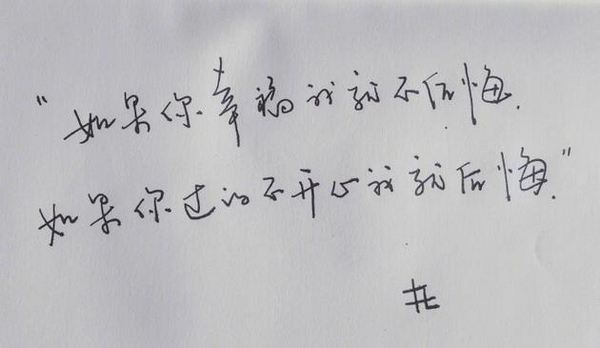 “如果你幸福我就不后悔.
如果你过的不开心我就后悔.”